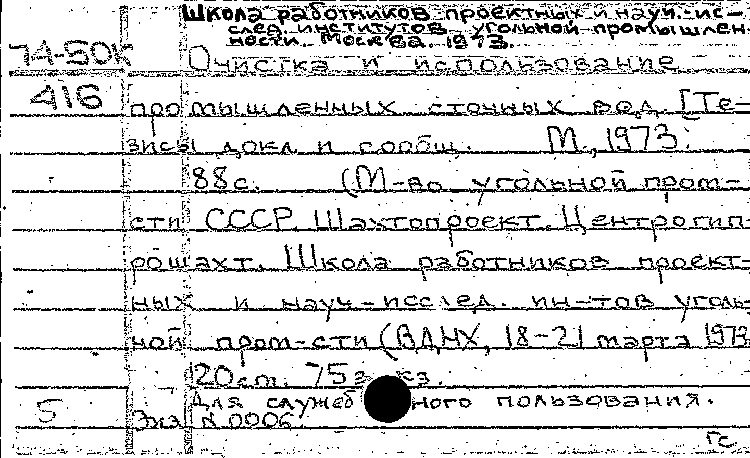 Школа работников проектных и науч.-ис-
след. институтов угольной промышлен-
ности. Москва. 1973.
74-50к Очистка и использование
416 промышленных сточных вод. [Те-
зисы докл и сообщ. М., 1973.
88с. (М-во угольной пром-
сти СССР. Шахтопроект. Центрогип-
рошахт. Школа работников проект-
ных и науч-исслед. ин-тов уголь-
ной пром-сти (ВДНХ, 18-21 марта 1973
20см. 75экз.
Для служебного пользования.
5 Экз N 0006.
гс